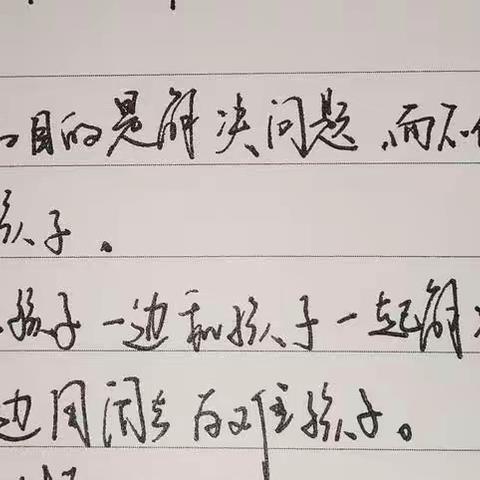 目的是解决问题，而不
孩子。
孩子一边和孩子一起解
边用问去为难孩子。